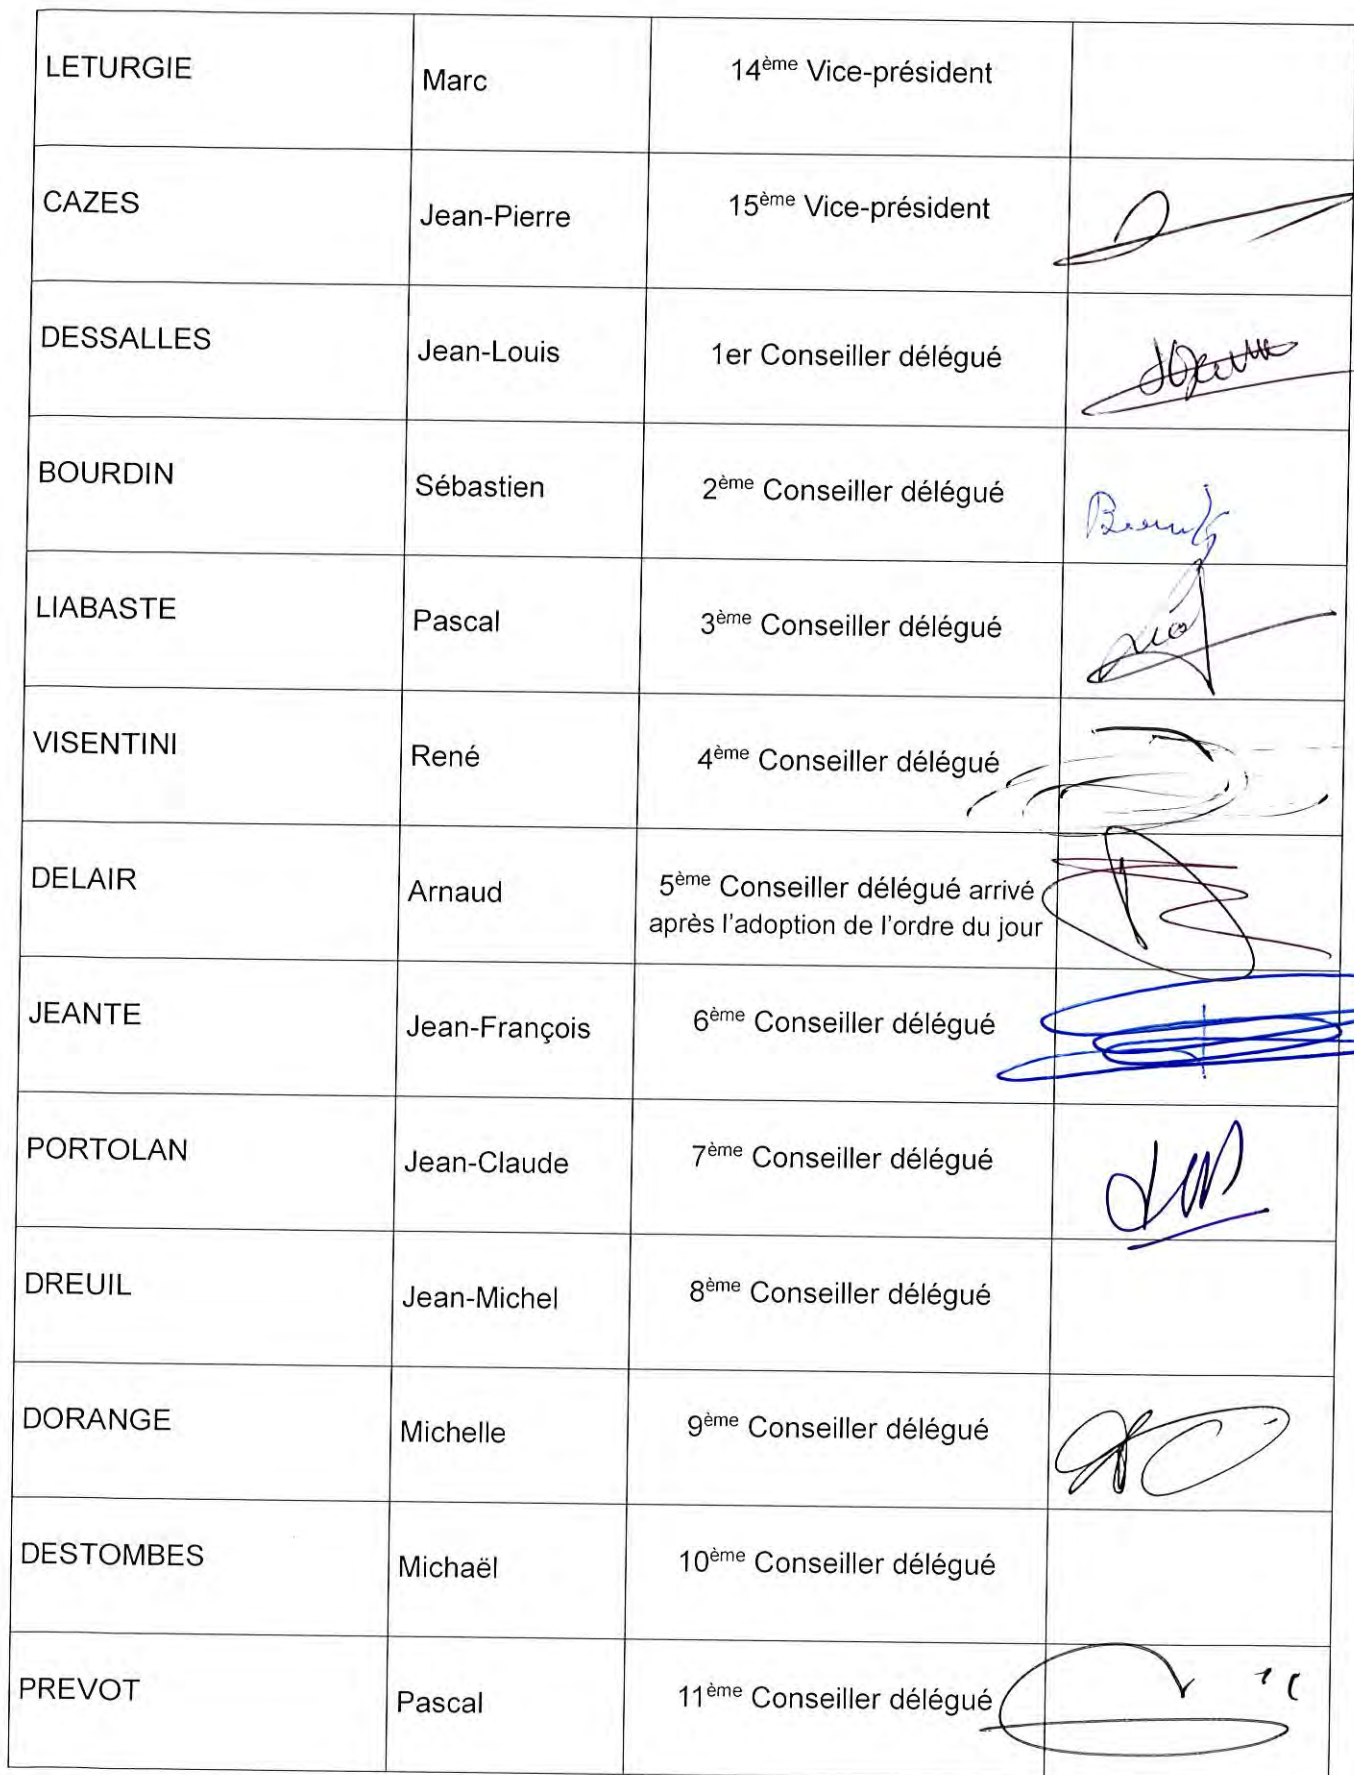 LETURGIE Marc 14ème Vice-président
CAZES Jean-Pierre 15ème Vice-président
DESSALLES Jean-Louis 1er Conseiller délégué
BOURDIN Sébastien 2ème Conseiller délégué
LIABASTE Pascal 3ème Conseiller délégué
VISENTINI René 4ème Conseiller délégué
DELAIR Arnaud 5ème Conseiller délégué arrivé
après l'adoption de l'ordre du jour
JEANTE Jean-François 6ème Conseiller délégué
PORTOLAN Jean-Claude 7ème Conseiller délégué
DREUIL Jean-Michel 8ème Conseiller délégué
DORANGE Michelle 9ème Conseiller délégué
DESTOMBES Michaël 10ème Conseiller délégué
PREVOT Pascal 11ème Conseiller délégué